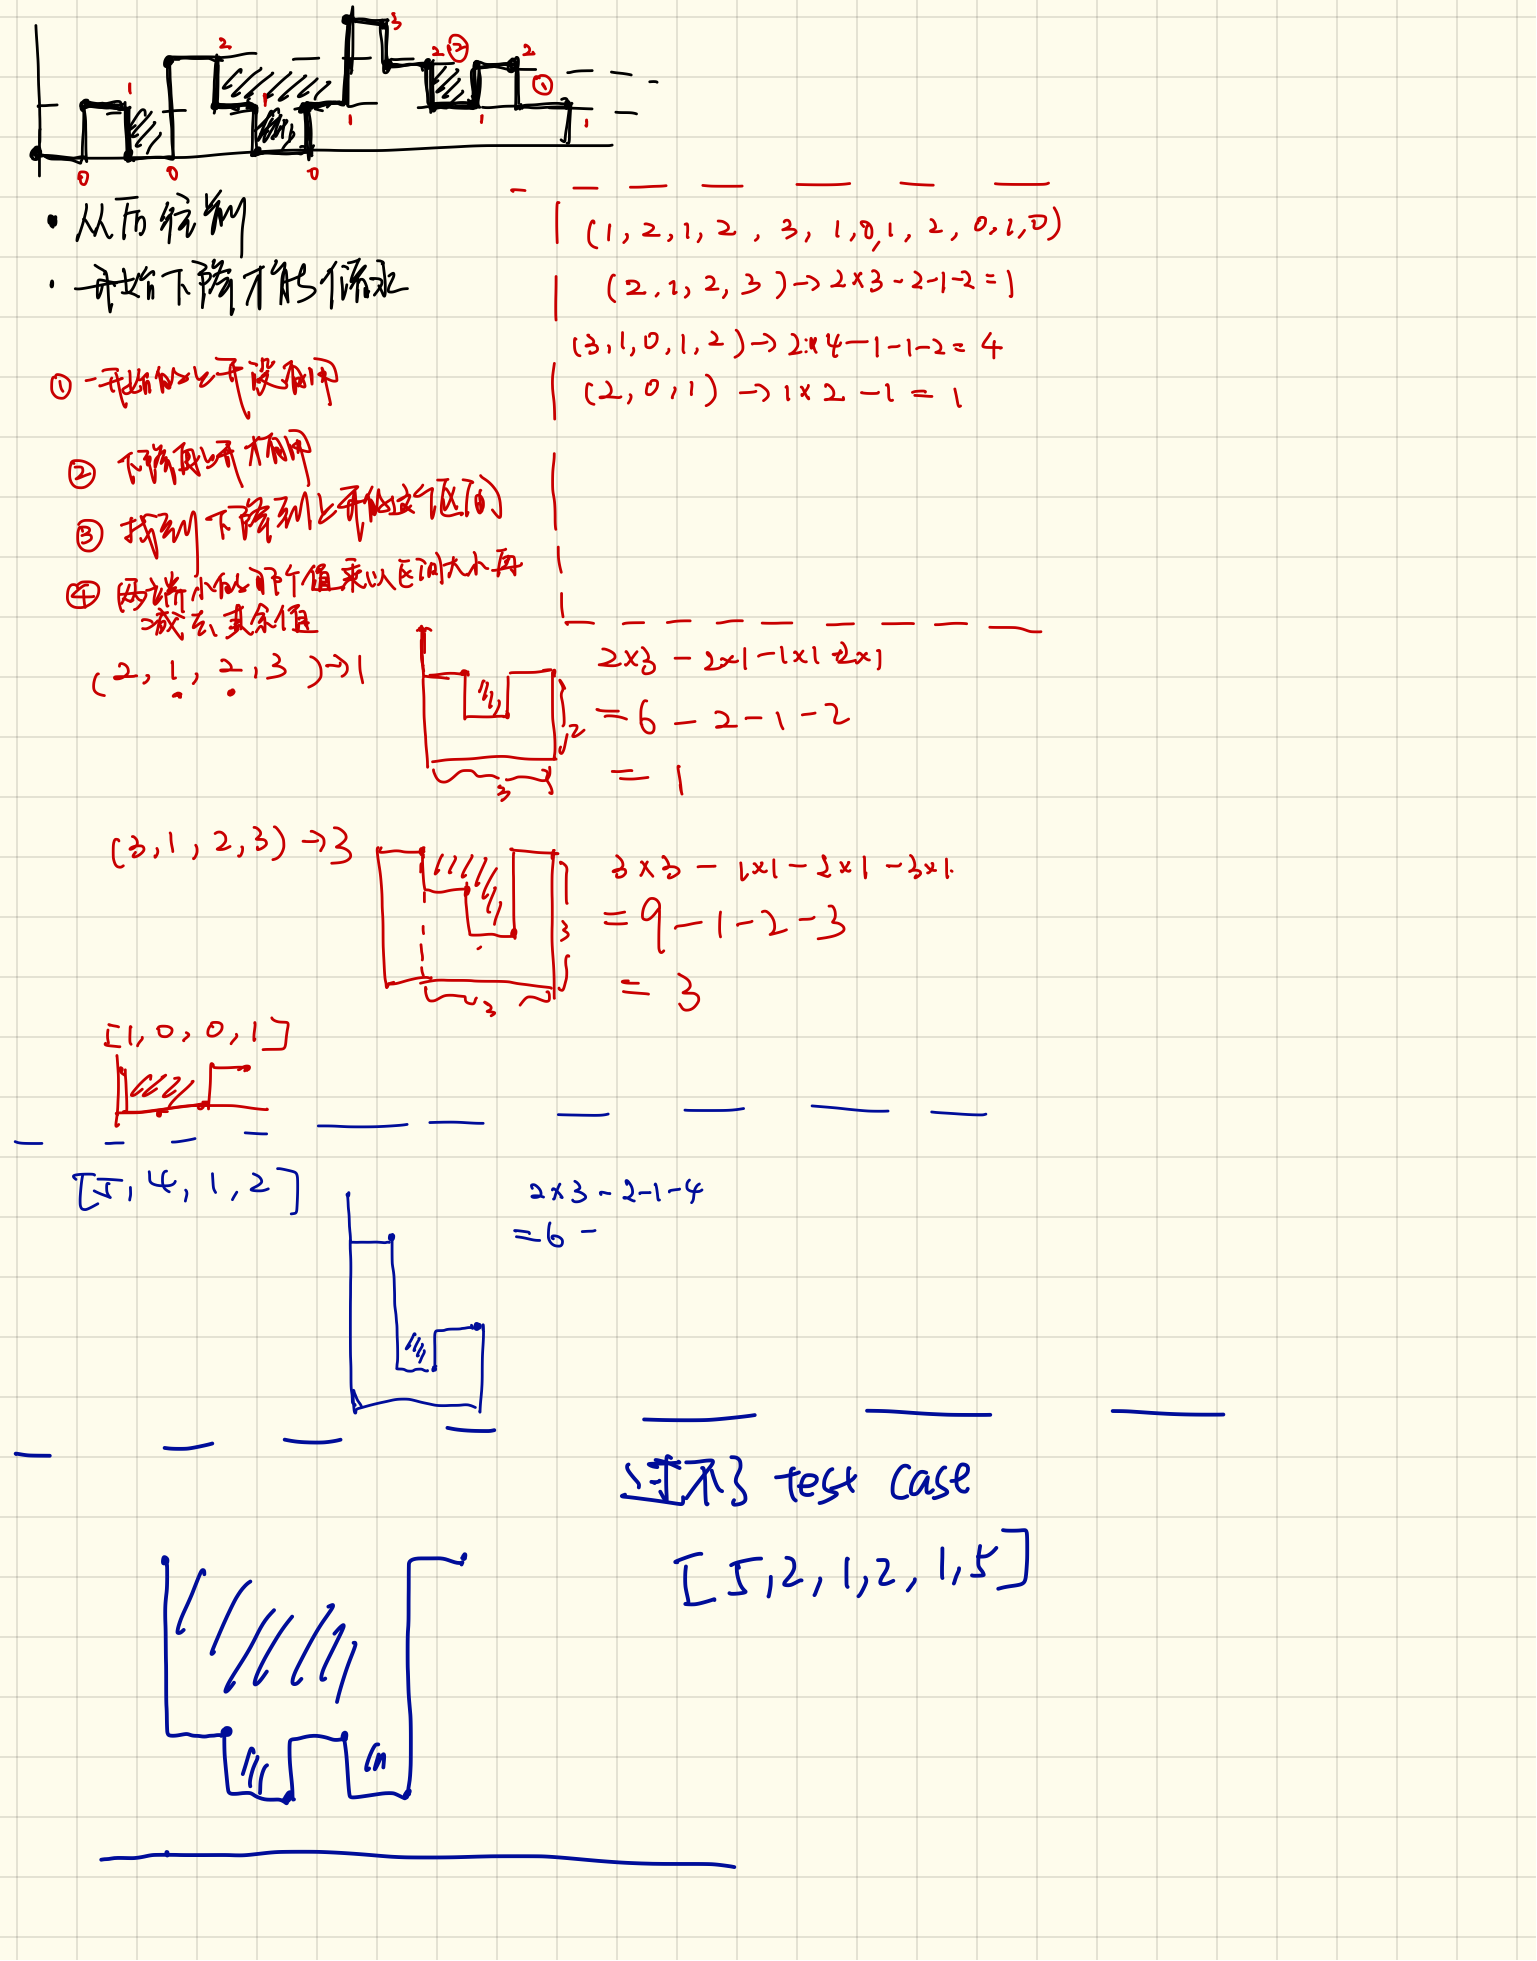 2
3
2
②
2
①
1
1
1
1
1
0
0
0
• 从后往前
• 一开始下降才能储水
① 一开始的上升没有用
② 下降再上升才有用
③ 找到下降到上升的这个区间
④ 两端小的那个值乘以区间大小再
减去其余值
(2, 1, 2, 3) → 1
(1, 2, 1, 2, 3, 1, 0, 1, 2, 0, 1, 0)
(2, 1, 2, 3) → 2×3-2-1-2=1
(3, 1, 0, 1, 2) → 2×4-1-1-2=4
(2, 0, 1) → 1×2-1=1
2
3
2×3 - 2×1 - 1×1 - 2×1
= 6 - 2 - 1 - 2
= 1
(3, 1, 2, 3) → 3
3
3
3×3 - 1×1 - 2×1 - 3×1
= 9 - 1 - 2 - 3
= 3
[1, 0, 0, 1]
[5, 4, 1, 2]
2×3-2-1-4
=6-
过不了 test case
[5, 2, 1, 2, 1, 5]